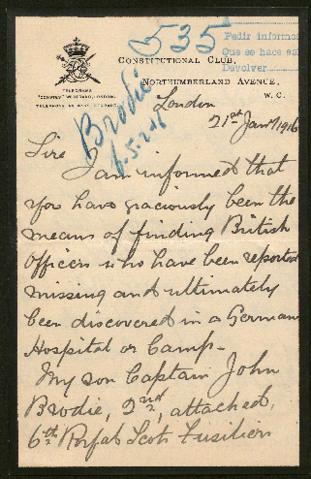 535
Pedir informe
Que se hace es
Devolver
CONSTITUTIONAL CLUB,
NORTHUMBERLAND AVENUE,
W. C.
TELEGRAMS
London
Brodie
21st Jany 1916
Sire
I am informed that
you have graciously been the
means of finding British
Officers who have been reported
missing and ultimately
been discovered in a German
Hospital or Camp-
My son Captain John
Brodie, 2nd, attached,
6th Royal Scots Fusiliers